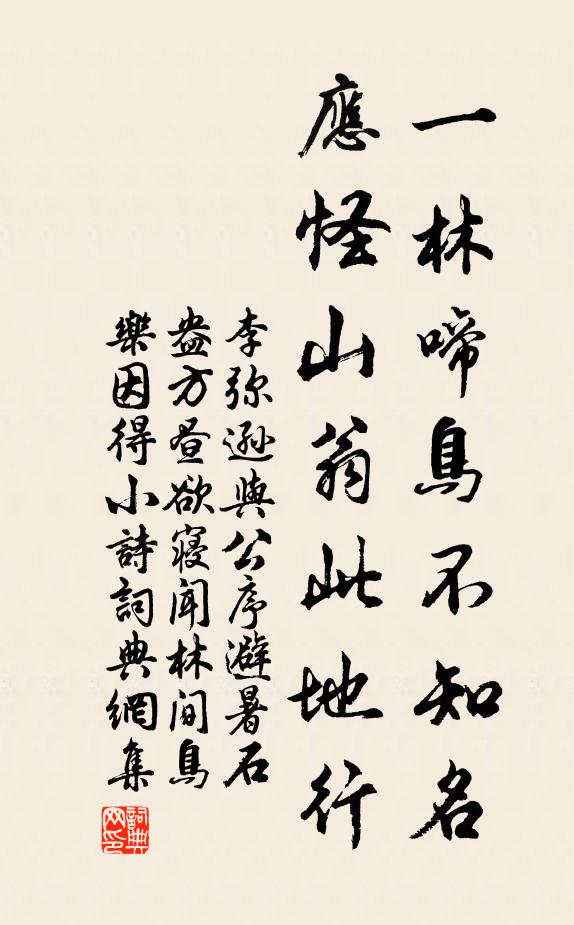 一林啼鳥不知名
應怪山翁此地行
李弥遜與公序避暑石
盎方晝欲寢聞林間鳥
樂因得小詩詞典網集
詞典
网印